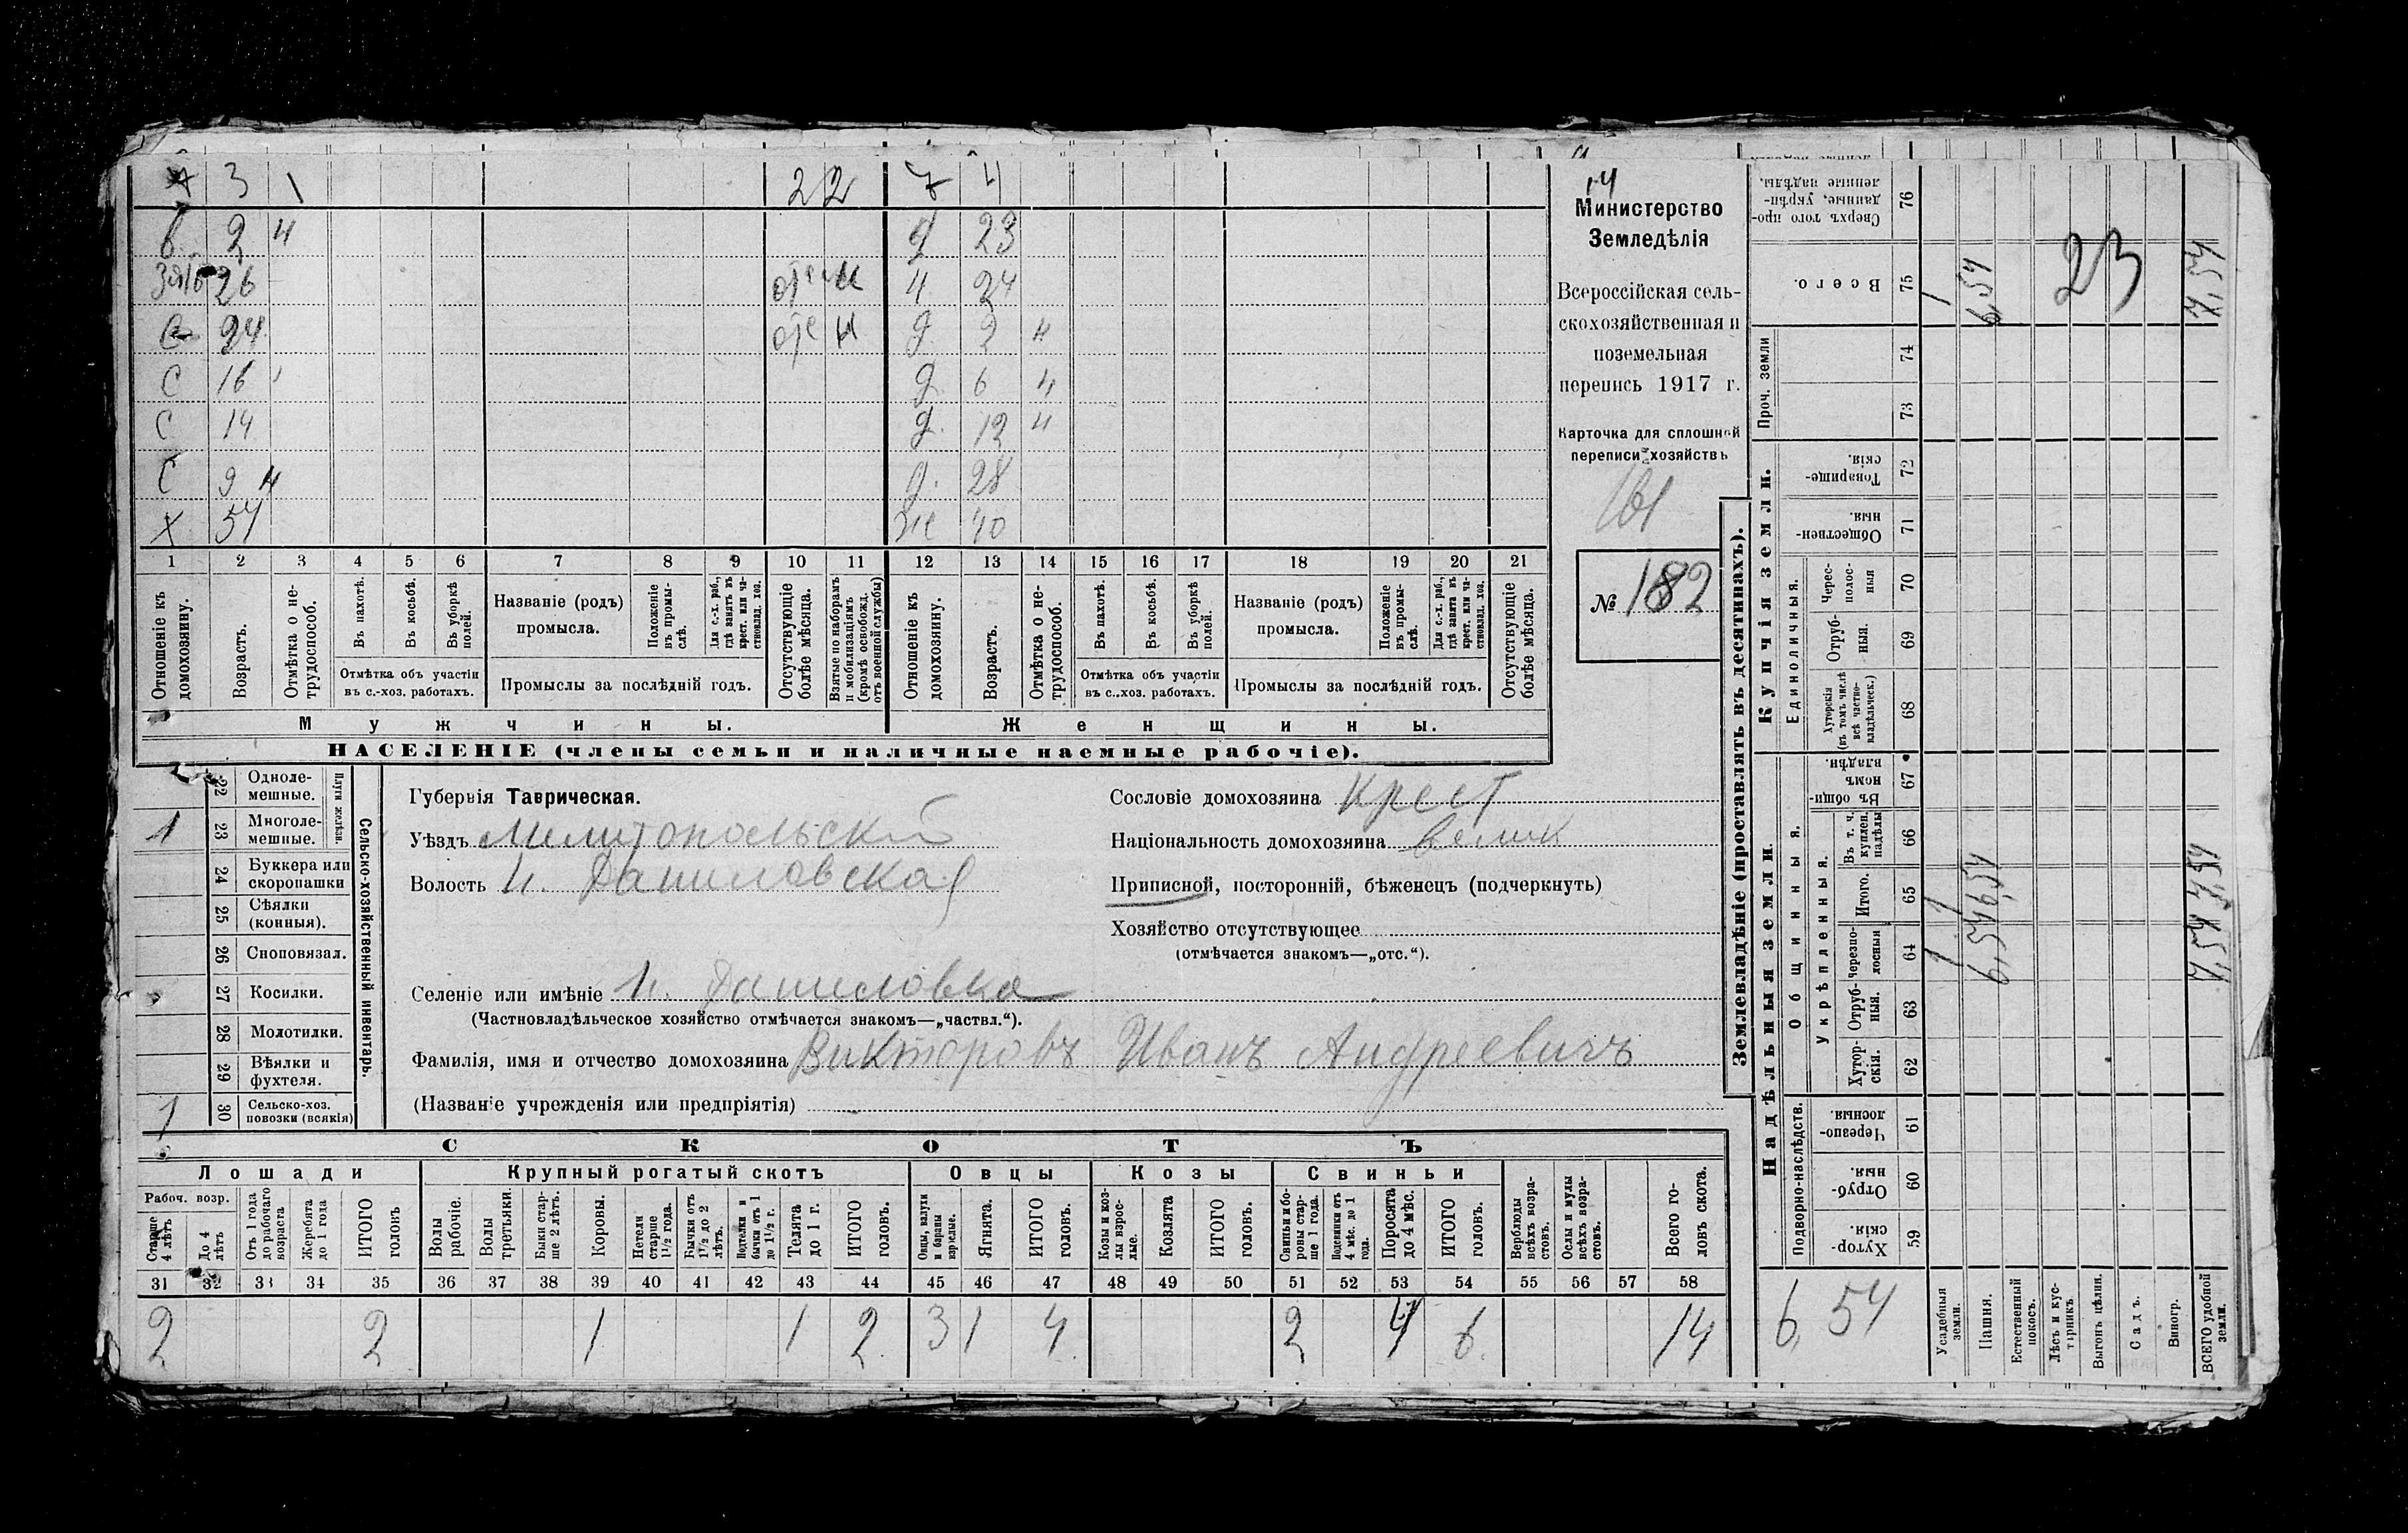 3 1 22 7 4
в 2 н д 23
зять 26 отс н н 24
с 24 отс н д 2 н
с 16 д 6 н
с 14 д 12 н
с 9 н д 28
х 54 ж 40
1 2 3 4 5 6 7 8 9 10 11 12 13 14 15 16 17 18 19 20 21
Отношеніе къ домохозяину.
Возрастъ.
Отмѣтка о нетрудоспособ.
Въ пахотѣ.
Въ косьбѣ.
Въ уборкѣ полей.
Отмѣтка объ участіи
въ с.-хоз. работахъ.
Названіе (родъ)
промысла.
Положеніе въ промыслѣ.
Для с.-х. раб., гдѣ занятъ въ крест. или частновлад. хоз.
Промыслы за послѣдній годъ.
Отсутствующіе болѣе мѣсяца.
Взятые по наборамъ и мобилизаціямъ (кромѣ освобожд. отъ военной службы)
Отношеніе къ домохозяину.
Возрастъ.
Отмѣтка о нетрудоспособ.
Въ пахотѣ.
Въ косьбѣ.
Въ уборкѣ полей.
Отмѣтка объ участіи
въ с.-хоз. работахъ.
Названіе (родъ)
промысла.
Положеніе въ промыслѣ.
Для с.-х. раб., гдѣ занята въ крест. или частновлад. хоз.
Промыслы за послѣдній годъ.
Отсутствующіе болѣе мѣсяца.
Мужчины. Женщины.
НАСЕЛЕНІЕ (члены семьи и наличные наемные рабочіе).
14
Министерство
Земледѣлія
Всероссійская сель-
скохозяйственная и
поземельная
перепись 1917 г.
Карточка для сплошной
переписи хозяйствъ
161
№ 182
22 Одноле-
мешные.
1 23 Многоле-
мешные.
Плуги желѣзн.
24 Буккера или
скоропашки
25 Сѣялки
(конныя).
26 Сноповязал.
27 Косилки.
28 Молотилки.
29 Вѣялки и
фухтеля.
1 30 Сельско-хоз.
повозки (всякія)
Сельско-хозяйственный инвентарь.
Губернія Таврическая.
Уѣздъ Мелитопольскій
Волость Н. Даниловская
Сословіе домохозяина Крест
Національность домохозяина велик
Приписной, посторонній, бѣженецъ (подчеркнуть)
Хозяйство отсутствующее
(отмѣчается знакомъ—„отс.“).
Селеніе или имѣніе Н. Даниловка
(Частновладѣльческое хозяйство отмѣчается знакомъ—„частвл.“).
Фамилія, имя и отчество домохозяина Викторовъ Иванъ Андреевичъ
(Названіе учрежденія или предпріятія)
СКОТЪ
Лошади Крупный рогатый скотъ Овцы Козы Свиньи
Рабоч. возр.
Старше 4 лѣтъ
До 4 лѣтъ
Отъ 1 года до рабочаго возраста
Жеребята до 1 года
ИТОГО головъ
Волы рабочіе.
Волы третьяки.
Быки старше 2 лѣтъ.
Коровы.
Нетели старше 1½ года.
Бычки отъ 1½ до 2 лѣтъ.
Подтелки и бычки отъ 1 до 1½ г.
Телята до 1 г.
ИТОГО головъ.
Овцы, валухи и бараны взрослые.
Ягнята.
ИТОГО головъ.
Козы и козлы взрослые.
Козлята
ИТОГО головъ.
Свиньи и боровы старше 1 года.
Подсвинки отъ 4 мѣс. до 1 года.
Поросята до 4 мѣс.
ИТОГО головъ.
Верблюды всѣхъ возрастовъ.
Ослы и мулы всѣхъ возрастовъ.
Всего головъ скота.
31 32 33 34 35 36 37 38 39 40 41 42 43 44 45 46 47 48 49 50 51 52 53 54 55 56 57 58
2 2 1 1 2 3 1 4 2 4 6 14
Землевладѣніе (проставлять въ десятинахъ).
Купчія земли.
Надѣльныя земли
76 Сверхъ того проданные, укрѣпленные надѣлы.
75 Всего. 1 6,54 23 7,54
Проч. земли
74
73
72 Товарищескія.
71 Общественныя.
Единоличныя.
70 Чересполосныя
69 Отрубныя.
68 Хуторскія (въ томъ числѣ всѣ частновладѣльческ.)
Общинныя.
67 Въ общинномъ владѣн.
Укрѣпленныя.
66 Въ т. ч. куплен. надѣлы
65 Итого. 1 6,54 7,54
64 Черезполосныя 1 6,54 7,54
63 Отрубныя.
62 Хуторскія.
Подворно-наслѣдств.
61 Черезполосныя
60 Отрубныя.
59 Хуторскія.
6,54
Усадебныя земли.
Пашня.
Естественный покосъ.
Лѣсъ и кустарникъ.
Выгонъ цѣлин.
Садъ.
Виногр.
ВСЕГО удобной земли.